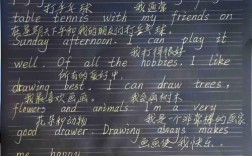 打乒乓球 我通常
table tennis with my friends on
在星期天下午和我的朋友们打乒乓球。
Sunday afternoon. I play it
我打得很好
well. Of all the hobbies. I like
所有的爱好中
drawing best. I can draw trees,
我最喜欢画画。 我会画树木
flowers and animals. I very
花朵和动物 我是一个非常棒的画家
good drawer. Drawing always makes
画画使我快乐。
me happy.